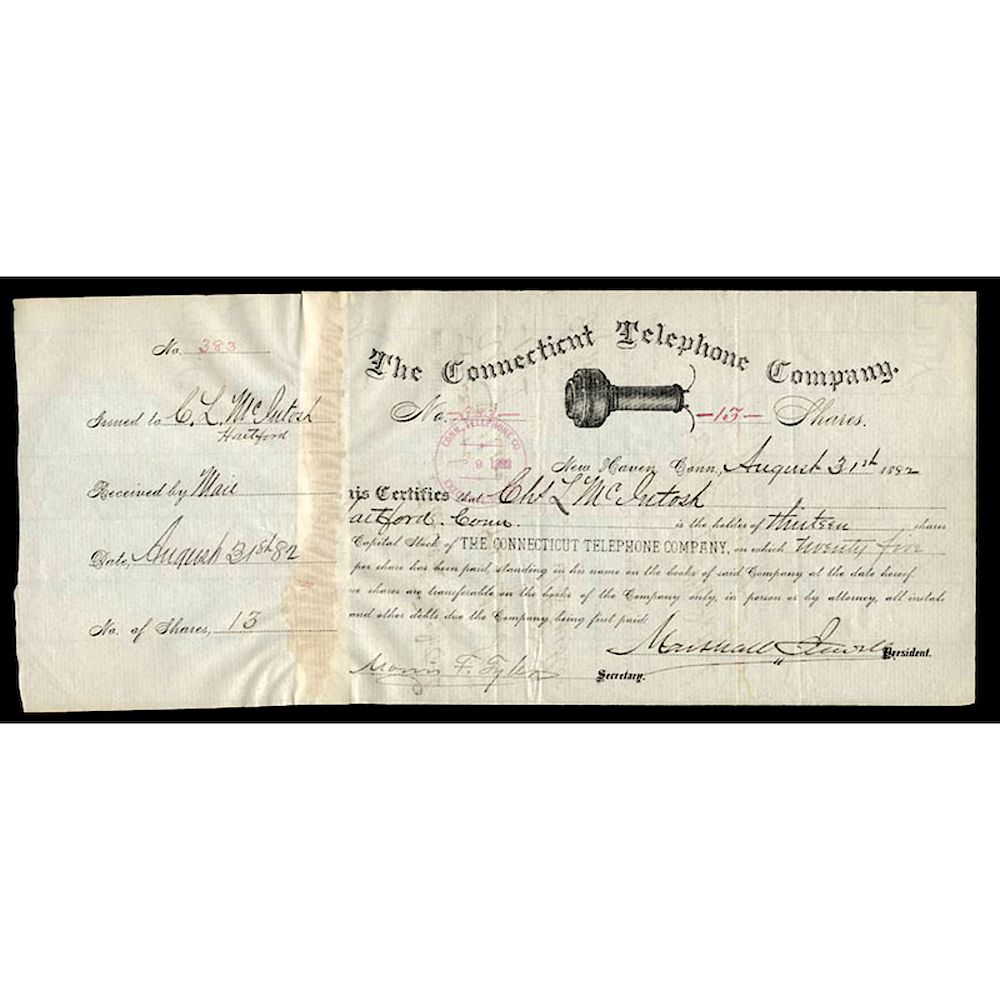 No. 383
Issued to C. L. McIntosh
Hartford
Received by Mail
Date, August 31st 82
No. of Shares, 13
The Connecticut Telephone Company.
No. 383 —13— Shares.
CONN. TELEPHONE CO
9 1882
New Haven Conn., August 31st 1882
his Certifies that Chs L McIntosh
artford. Conn. is the holder of thirteen shares
Capital Stock of THE CONNECTICUT TELEPHONE COMPANY, on which twenty five
per share has been paid, standing in his name on the books of said Company at the date hereof.
shares are transferable on the books of the Company only, in person or by attorney, all instal-
and other debts due the Company, being first paid.
Marshall Jewell President.
Morris F. Tyler Secretary.